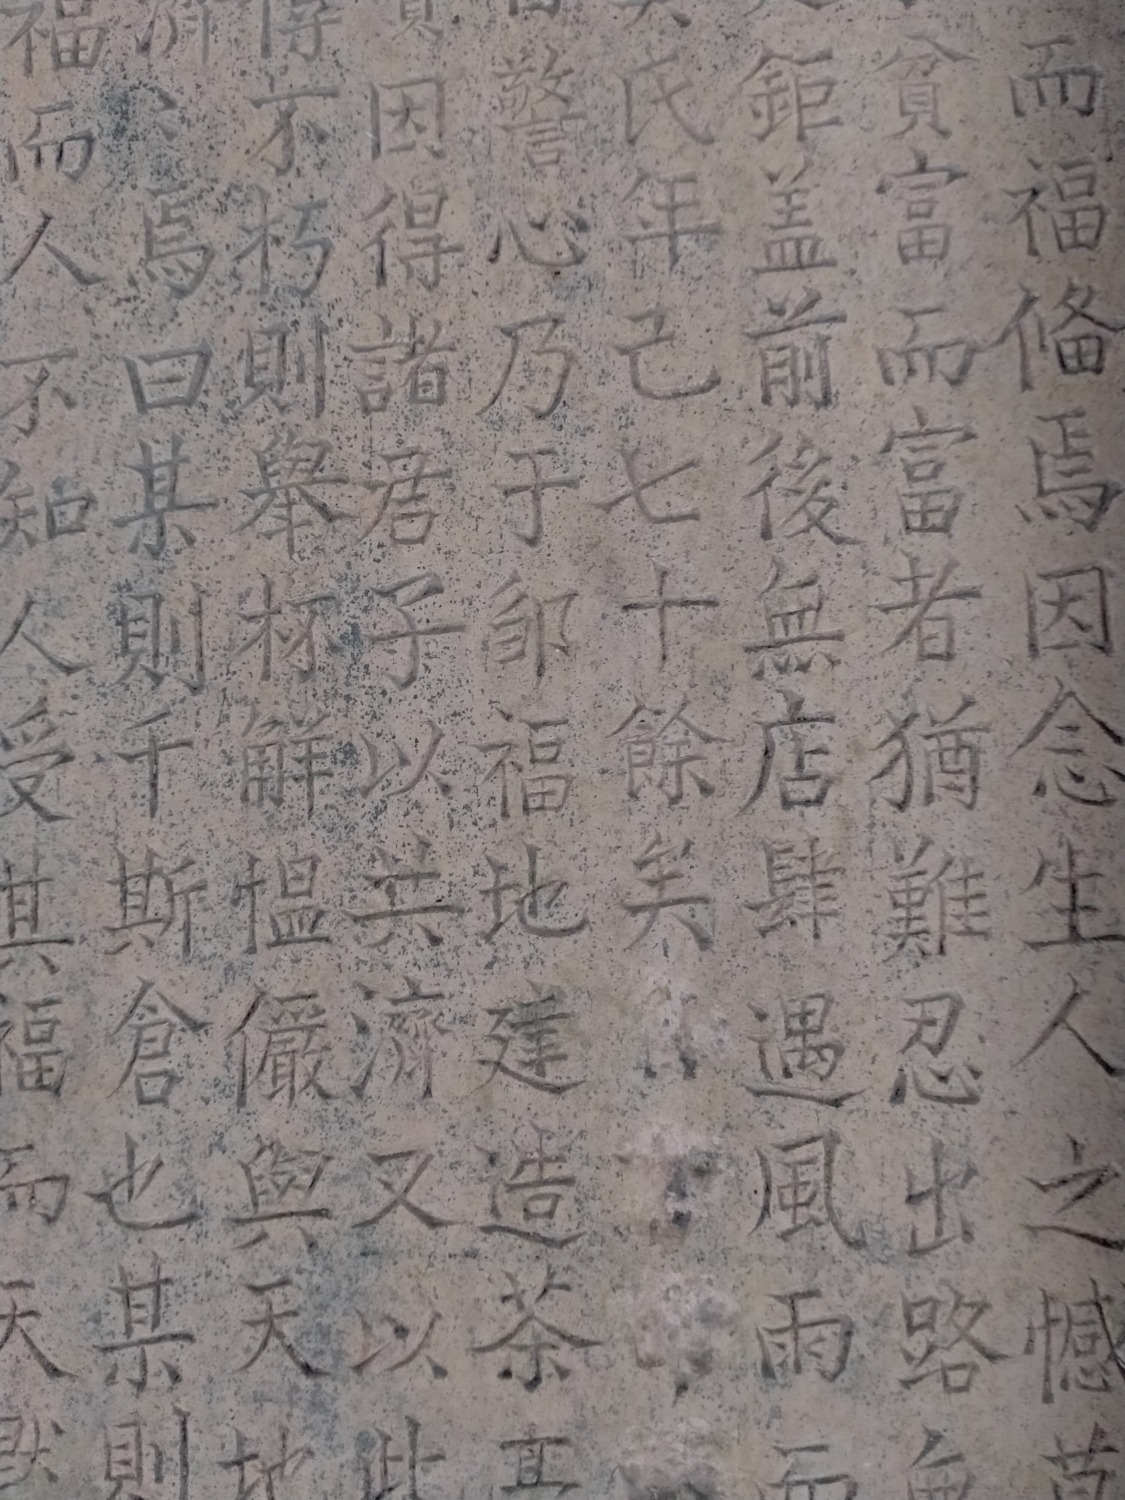 而福脩焉因念生人之憾莫
貧富而富者猶難忍出路
鉅盖前後無店肆遇風雨而
氏年已七十餘矣
警心乃于邹福地建造茶亭
因得諸君子以共濟又以此
得不朽則舉材觧愠儼與天地
焉曰某則千斯倉也某則
福而人不知人受其福而天